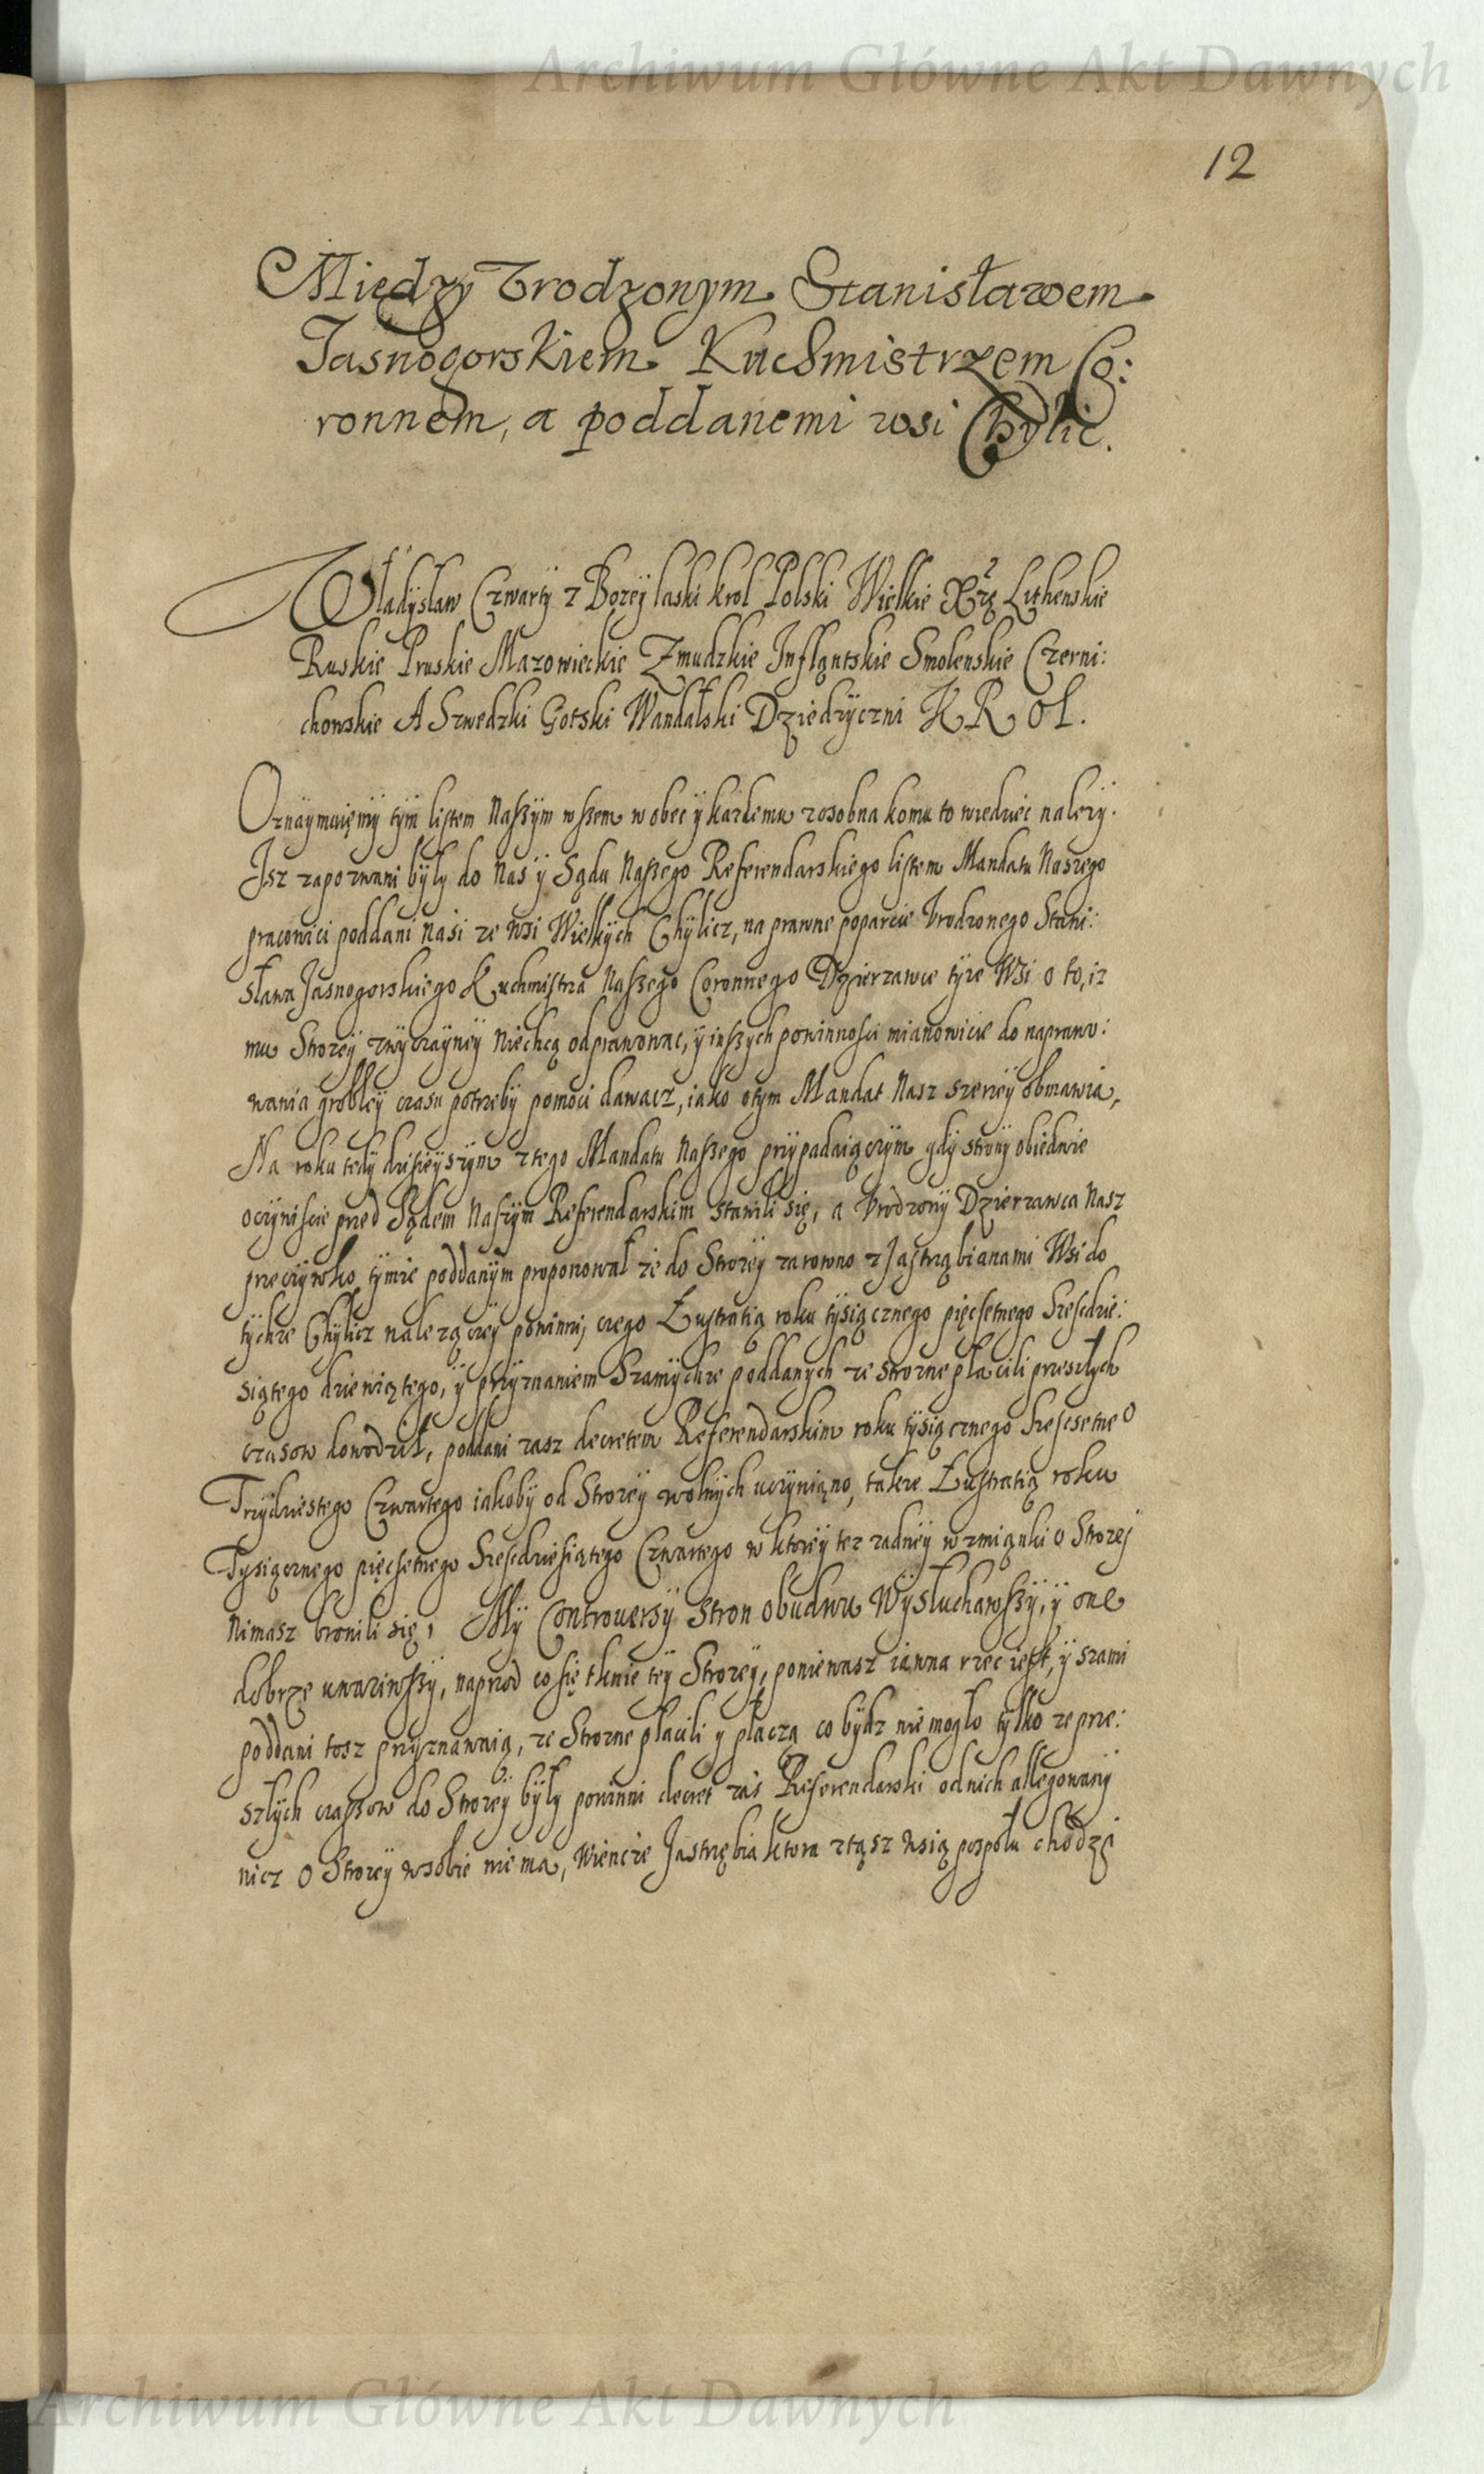 Archiwum Główne Akt Dawnych
12
Między Vrodzonym Stanisławem
Jasnogorskiem Kuchmistrzem Co:
ronnem, a poddanemi wsi Chylic.
Władysław Czwarty z Bozey laski krol Polski Wielkie Xżę Lithewskie
Ruskie Pruskie Mazowieckie Zmudzkie Inflantskie Smolenskie Czerni:
chowskie A Szwedzki Gotski Wandalski Dziedzyczni KROL.
Oznaymuięmÿ tÿm listem Naszÿm wszem wobec ÿ kazdemu zosobna komu to wiedziec nalezÿ.
Isz zapozwani bÿly do Nas ÿ Sądu Naszego Referendarskiego listem Mandatu Naszego
pracowici poddani Nasi ze Wsi Wielkÿch Chÿlicz, na prawne poparcie Vrodzonego Stani:
sława Jasnogorskiego Kuchmistrza Naszego Coronnego Dzierzawce tÿze Wsi o to, iz
mu Strozÿ zwÿczaÿnÿ Niechcą odprawowac, ÿ inszych powinnosci mianowicie do naprawo:
wania groblÿ czasu potrzebÿ pomoci dawacz, iako otym Mandat Nasz szerzÿ obmawia,
Na roku tedÿ dzisieÿszÿm z tego Mandatu Naszego przÿpadaiączÿm gdÿ stronÿ obiedwie
oczÿwiscie przed Sądem Naszÿm Referendarskim stawili się, a Vrodzonÿ Dzierzawca Nasz
przeciÿwko tÿmze poddanÿm proponował ze do Strozÿ zarowno z Jastrząbianami Wsi do
tÿchze Chÿlicz nalezączeÿ powinni, czego Lustratią roku tÿsiącznego pięcsetnego Szescdzie:
siątego dziewiątego, ÿ przÿznaniem Szamÿchze poddanych ze strozne płacili przeszłych
czasow dowodził, poddani zasz decretem Referendarskim roku tÿsiącznego Szescsetneo
Trzÿdziestego Czwartego iakobÿ od Strozÿ wolnÿch uczÿniąno, takze Lustratią roku
Tysiącznego pięcsetnego Szescdziesiątego Czwartego w ktorÿ tez zadnÿ wzmiąnki o Strozej
Nimasz bronili się, Mÿ Controuersÿ stron obudwu Wÿsłuchawszÿ, ÿ one
dobrze uwazÿwszÿ, naprzod co się tknie tÿ Strozÿ, poniewasz iawna rzecz iest, ÿ szami
poddani tosz przÿznawaią, ze Strozne płacili y płaczą co bÿdz nie mogło tylko ze prze:
szlych czaszow do Strozÿ bÿly powinni decret zas Referendarski odnich allegowanÿ
nicz o Strozÿ wsobie nie ma, Wiencze Jastrzębia ktora ztąsz wsią pospołu chodzi
Archiwum Główne Akt Dawnych